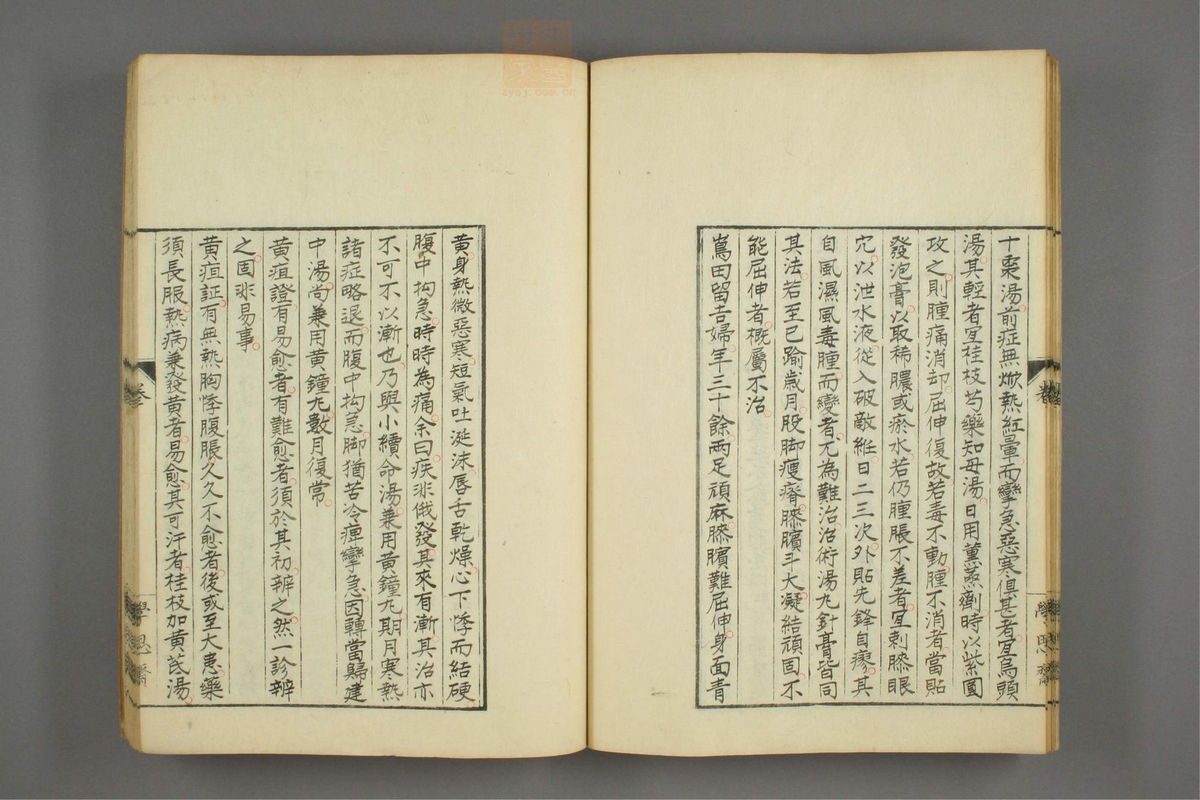 十棗湯前症無焮熱紅暈而攣急惡寒俱甚者宜烏頭
湯其輕者宜桂枝芍藥知母湯日用薰蒸劑時以紫圓
攻之則腫痛消却屈伸復故若毒不動腫不消者當貼
發泡膏以取稀膿或瘀水若仍腫脹不差者宜刺膝眼
穴以泄水液從入破敵絍日二三次外貼先鋒自療其
自風濕風毒腫而變者尤為難治治術湯丸針膏皆同
其法若至已踰歲月股脚瘦瘠膝臏斗大凝結頑固不
能屈伸者概屬不治
嶌田留吉婦年三十餘兩足頑麻膝臏難屈伸身面青
黄身熱微惡寒短氣吐涎沫唇舌乾燥心下悸而結硬
腹中拘急時時為痛余曰疾非俄發其來有漸其治亦
不可不以漸也乃與小續命湯兼用黄鐘丸期月寒熱
諸症略退而腹中拘急脚猶苦冷痺攣急因轉當歸建
中湯尚兼用黄鐘丸數月復常
黄疸證有易愈者有難愈者須於其初辨之然一診辨
之固非易事
黄疸証有無熱胸悸腹脹久久不愈者後或至大患藥
須長服熱病兼發黄者易愈其可汗者桂枝加黄芪湯
卷
學思齋